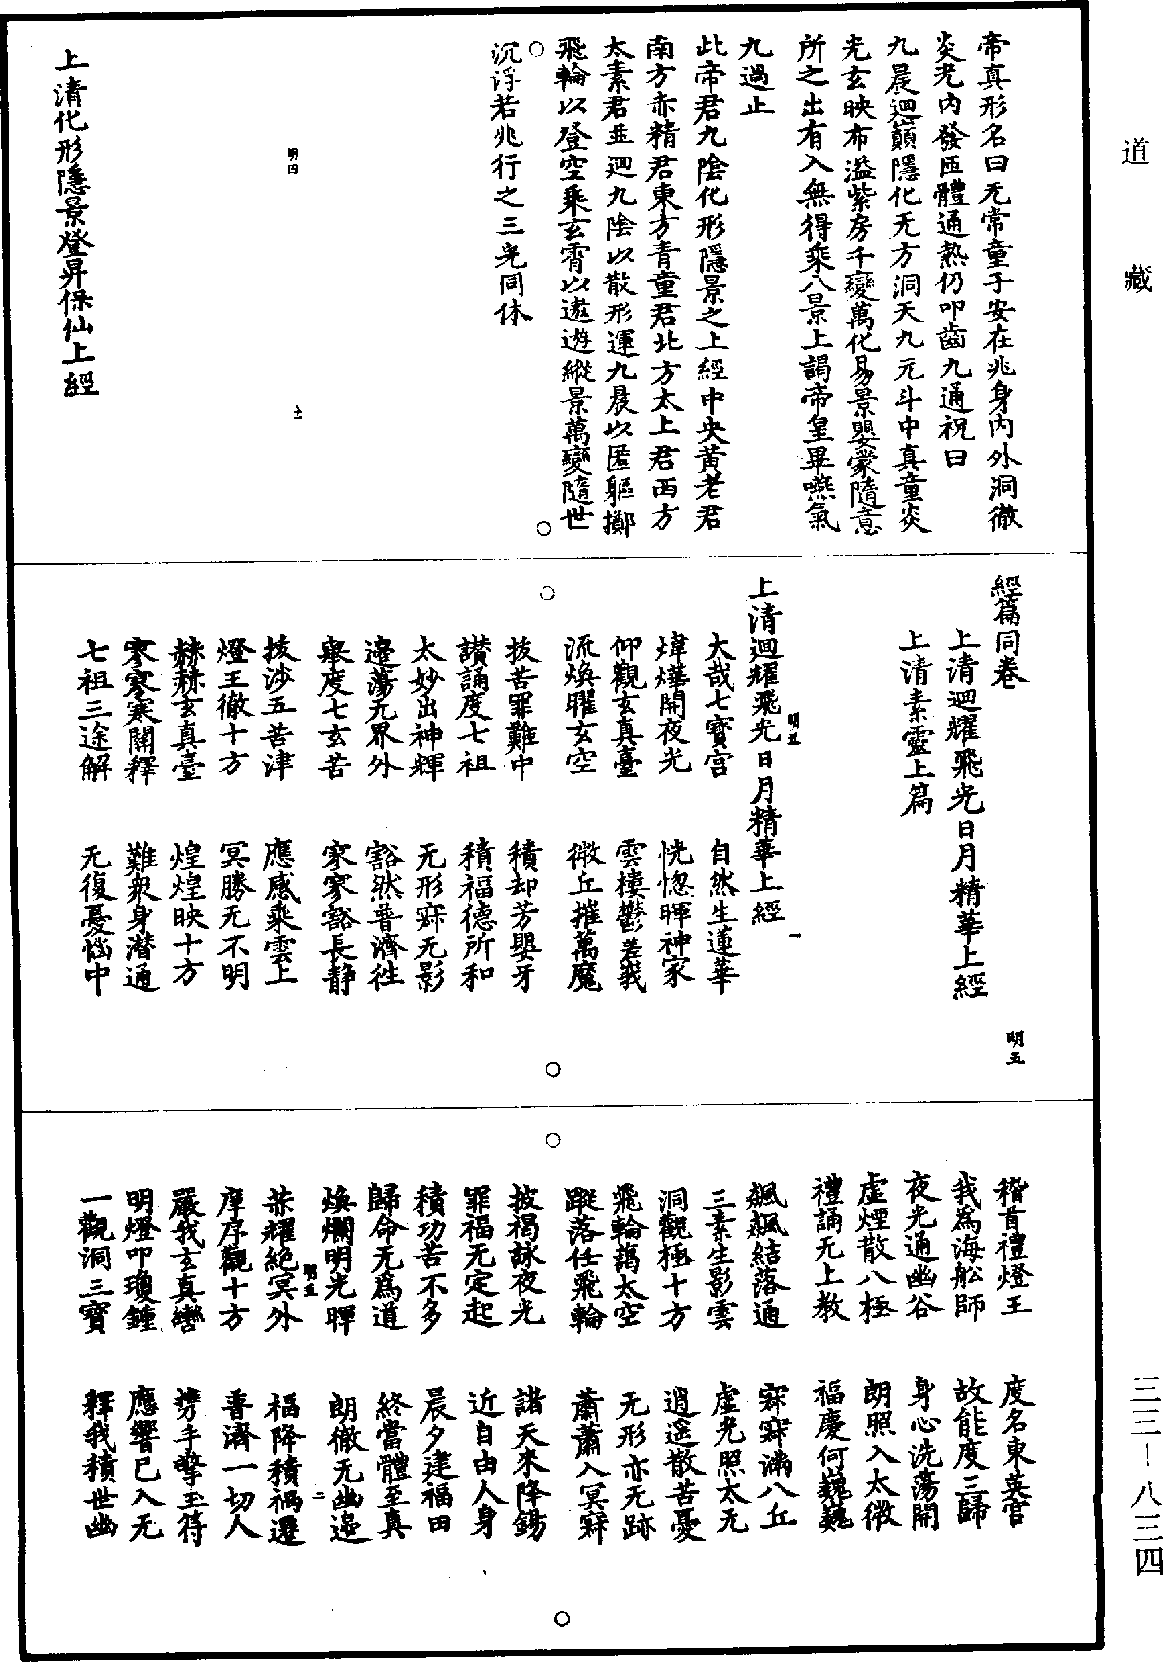 道藏
帝真形名曰无常童子安在兆身內外洞徹
炎光內發匝體通熱仍叩齒九通祝曰
九晨迴巔隱化无方洞天九元斗中真童炎
光玄映布溢紫房千變萬化易景嬰蒙隨意
所之出有入無得乘八景上謁帝皇畢嚥氣
九過止
此帝君九陰化形隱景之上經中央黃老君
南方赤精君東方青童君北方太上君西方
太素君並迴九陰以散形運九晨以匿軀擲
飛輪以登空乘玄霄以遨遊縱景萬變隨世
沉浮若兆行之三光同休
明四
十二
上清化形隱景登昇保仙上經
經篇同卷
明五
上清迴耀飛光日月精華上經
上清素靈上篇
明五
一
上清迴耀飛光日月精華上經
大哉七寶宮 自然生蓮華
煒燁開夜光 恍惚暉神家
仰觀玄真臺 雲棲鬱差峩
流煥曜玄空 微丘摧萬魔
拔苦罪難中 積却芳嬰牙
讃誦度七祖 積福德所和
太妙出神輝 无形寂无影
邊蕩无界外 豁然普濟往
舉度七玄苦 寂寂豁長靜
拔涉五苦津 應感乘雲上
燈王徹十方 冥勝无不明
赫赫玄真臺 煌煌映十方
寥寥寒關釋 難衆身潛通
七祖三途解 无復憂惱中
稽首禮燈王 度名東英宮
我為海舩師 故能度三歸
夜光通幽谷 身心洗蕩開
虛煙散八極 朗照入太微
禮誦无上教 福慶何巍巍
飆飆結落通 寂寂滿八丘
三素生影雲 虛光照太无
洞觀極十方 逍遥散苦憂
飛輪藹太空 无形亦无跡
蹤落任飛輪 蕭蕭入冥寂
披褐詠夜光 諸天來降錫
罪福无定起 近自由人身
積功苦不多 晨夕建福田
歸命无為道 終當體至真
煥爛明光暉 朗徹无幽邊
明五
二
荣耀絕冥外 福降積禍遷
摩序觀十方 普濟一切人
嚴我玄真轡 携手擎玉符
明燈叩瓊鍾 應響已入无
一觀洞三寶 釋我積世幽
三三－八三四